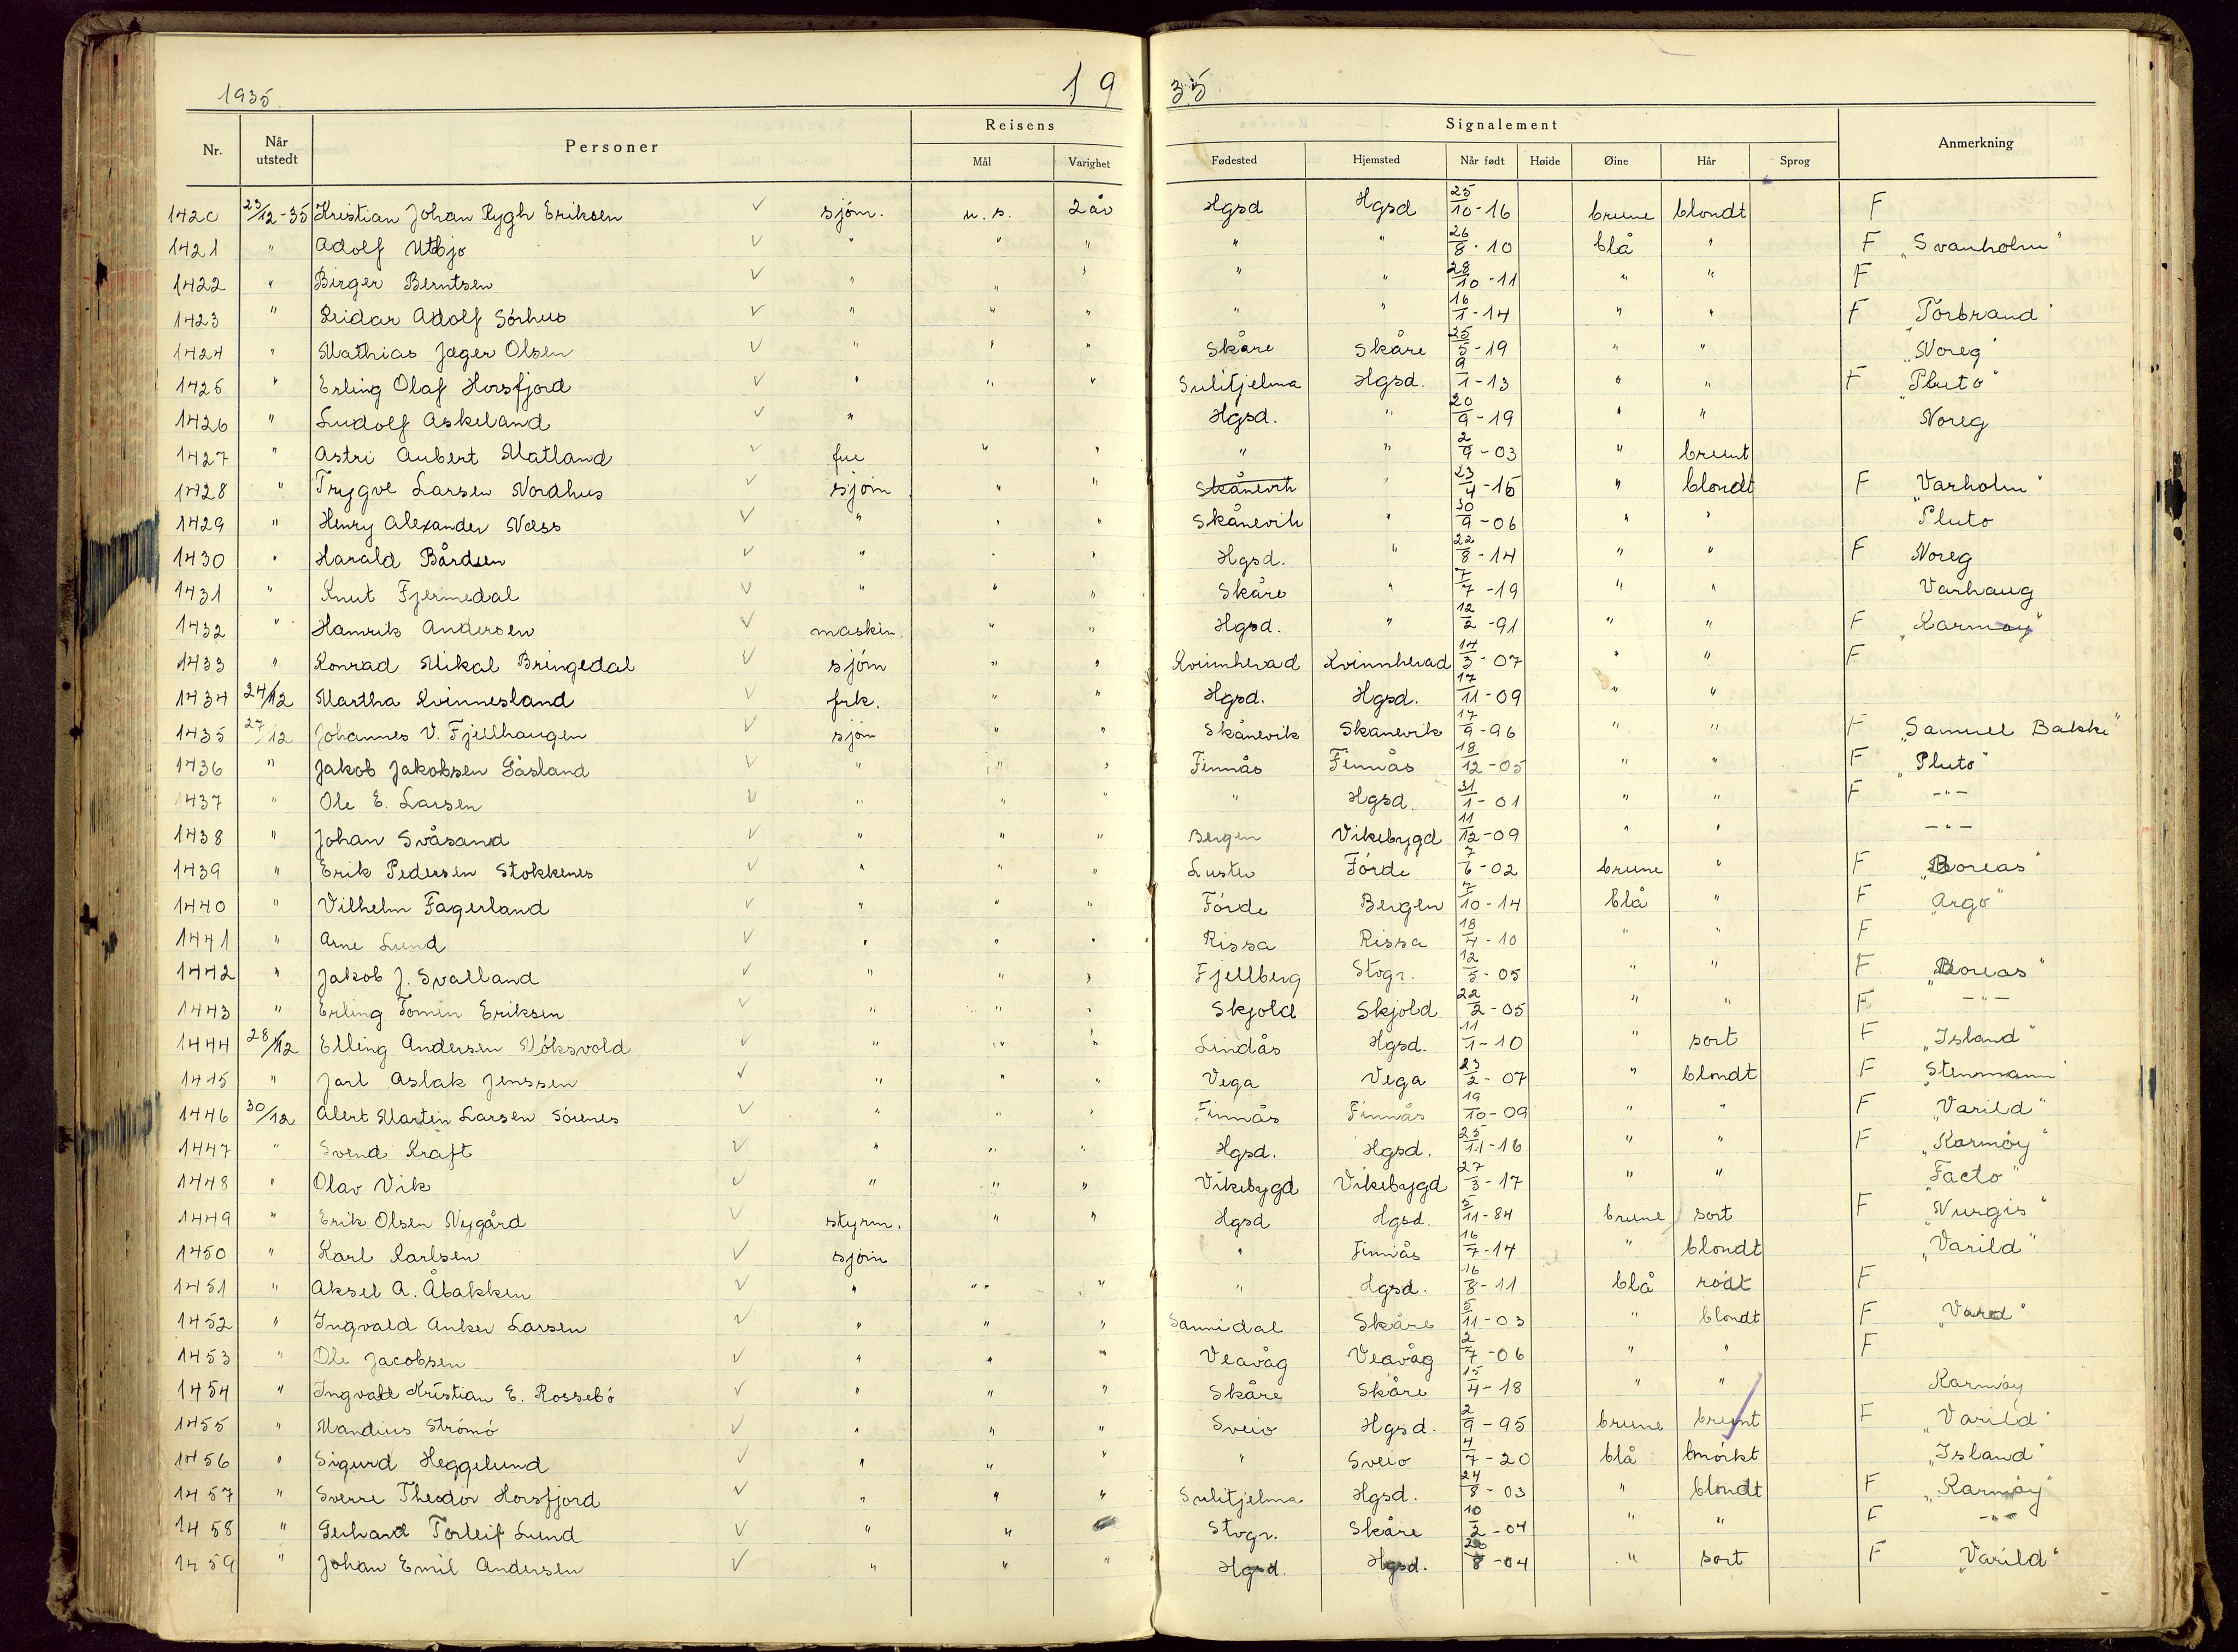 1935. 19 35
Reisens Signalement
Nr. Når utstedt Personer Mål Varighet Fødested Hjemsted Når født Høide Øine Hår Sprog Anmerkning
1420 23/12-35 Kristian Johan Rygh Eriksen ✓ sjøm. u.s. 2 år Hgsd Hgsd 25/10-16 brune blondt F
1421 " Adolf Utbjo ✓ " " " " " 26/8-10 blå " F "Svanholm"
1422 " Birger Berntsen ✓ " " " " " 28/10-11 " " F
1423 " Reidar Adolf Sørhus ✓ " " " " " 16/1-14 " " F "Torbrand"
1424 " Mathias Jæger Olsen ✓ " " " Skåre Skåre 25/5-19 " " "Noreg"
1425 " Erling Olaf Horsfjord ✓ " " " Sulitjelma Hgsd. 9/1-13 " " F "Pluto"
1426 " Ludolf Askeland ✓ " Hgsd. " 20/9-19 " " Noreg
1427 " Astri Aubert Matland ✓ fru " " " " 2/9-03 " brunt
1428 " Trygve Larsen Nordhus ✓ sjøm " " Skånevik " 23/4-15 " blondt F "Varholm"
1429 " Henry Alexander Næss ✓ " " " Skånevik " 30/9-06 " " "Pluto
1430 " Harald Bårdsen ✓ " " " Hgsd. " 22/8-14 " " F Noreg
1431 " Knut Fjermedal ✓ " " " Skåre " 7/7-19 " " Varhaug
1432 " Hamrik Andersen ✓ maskin. " " Hgsd. " 12/2-91 " " F "Karmøy"
1433 " Konrad Mikal Bringedal ✓ sjøm " " Kvinnherad Kvinnherad 14/3-07 " " F
1434 24/12 Martha Kvinnesland ✓ frk. " " Hgsd. Hgsd. 17/11-09 " "
1435 27/12 Johannes V. Fjellhaugen ✓ sjøm " " Skånevik Skanevik 17/9-96 " " F "Samuel Bakke"
1436 " Jakob Jakobsen Gåsland ✓ " " " Finnås Finnås 18/12-05 " " F "Pluto"
1437 " Ole E. Larsen ✓ " " " " Hgsd. 31/1-01 " " F -"-
1438 " Johan Svåsand ✓ " " " Bergen Vikebygd 11/12-09 " " -"-
1439 " Erik Pedersen Stokkenes ✓ " " " Luster Førde 7/6-02 brune " F "Boreas"
1440 " Vilhelm Fagerland ✓ " " " Førde Bergen 7/10-14 blå " F "Argo"
1441 " Arne Lund ✓ " " " Rissa Rissa 18/4-10 " " F
1442 " Jakob J. Svalland ✓ " " " Fjellberg Stvgr. 12/5-05 " " F "Boreas"
1443 " Erling Tomin Eriksen ✓ " " " Skjold Skjold 22/2-05 " " F -"-
1444 28/12 Elling Andersen Vøksvold ✓ " " " Lindås Hgsd. 11/1-10 " sort F "Island"
1445 " Jarl Aslak Jenssen ✓ " " " Vega Vega 23/2-07 " blondt F "Stenmann"
1446 30/12 Alert Martin Larsen Sørenes ✓ " " " Finnås Finnås 19/10-09 " " F "Varild"
1447 " Svend Kraft ✓ " " " Hgsd. Hgsd. 25/11-16 " " F "Karmøy"
1448 " Olav Vik ✓ " " " Vikebygd Vikebygd 27/3-17 " " "Facto"
1449 " Erik Olsen Nygård ✓ styrm. " " Hgsd Hgsd. 5/11-84 brune sort F "Nurgis"
1450 " Karl Karlsen ✓ sjøm " Finnås 16/7-14 " blondt "Varild"
1451 " Aksel A. Åbakken ✓ " " " " Hgsd. 16/8-11 blå rødt F
1452 " Ingvald Anker Larsen ✓ " " " Sannidal Skåre 5/11-03 " blondt F "Vard"
1453 " Ole Jacobsen ✓ " " " Veavåg Veavåg 2/7-06 " " F
1454 " Ingvald Kristian E. Rossebø ✓ " " " Skåre Skåre 15/4-18 " " Karmøy
1455 " Mandius Strømø ✓ " " " Sveio Hgsd. 2/9-95 brune brunt F "Varild"
1456 " Sigurd Heggelund ✓ " " " " Sveio 4/7-20 blå mørkt "Island"
1457 " Sverre Theodor Horsfjord ✓ " " " Sulitjelma Hgsd. 24/8-03 " blondt F "Karmøy"
1458 " Gerhard Torleif Lund ✓ " " " Stvgr. Skåre 10/2-04 " " F -"-
1459 " Johan Emil Andersen ✓ " " " Hgsd. Hgsd. 8-04 " sort F "Varild"